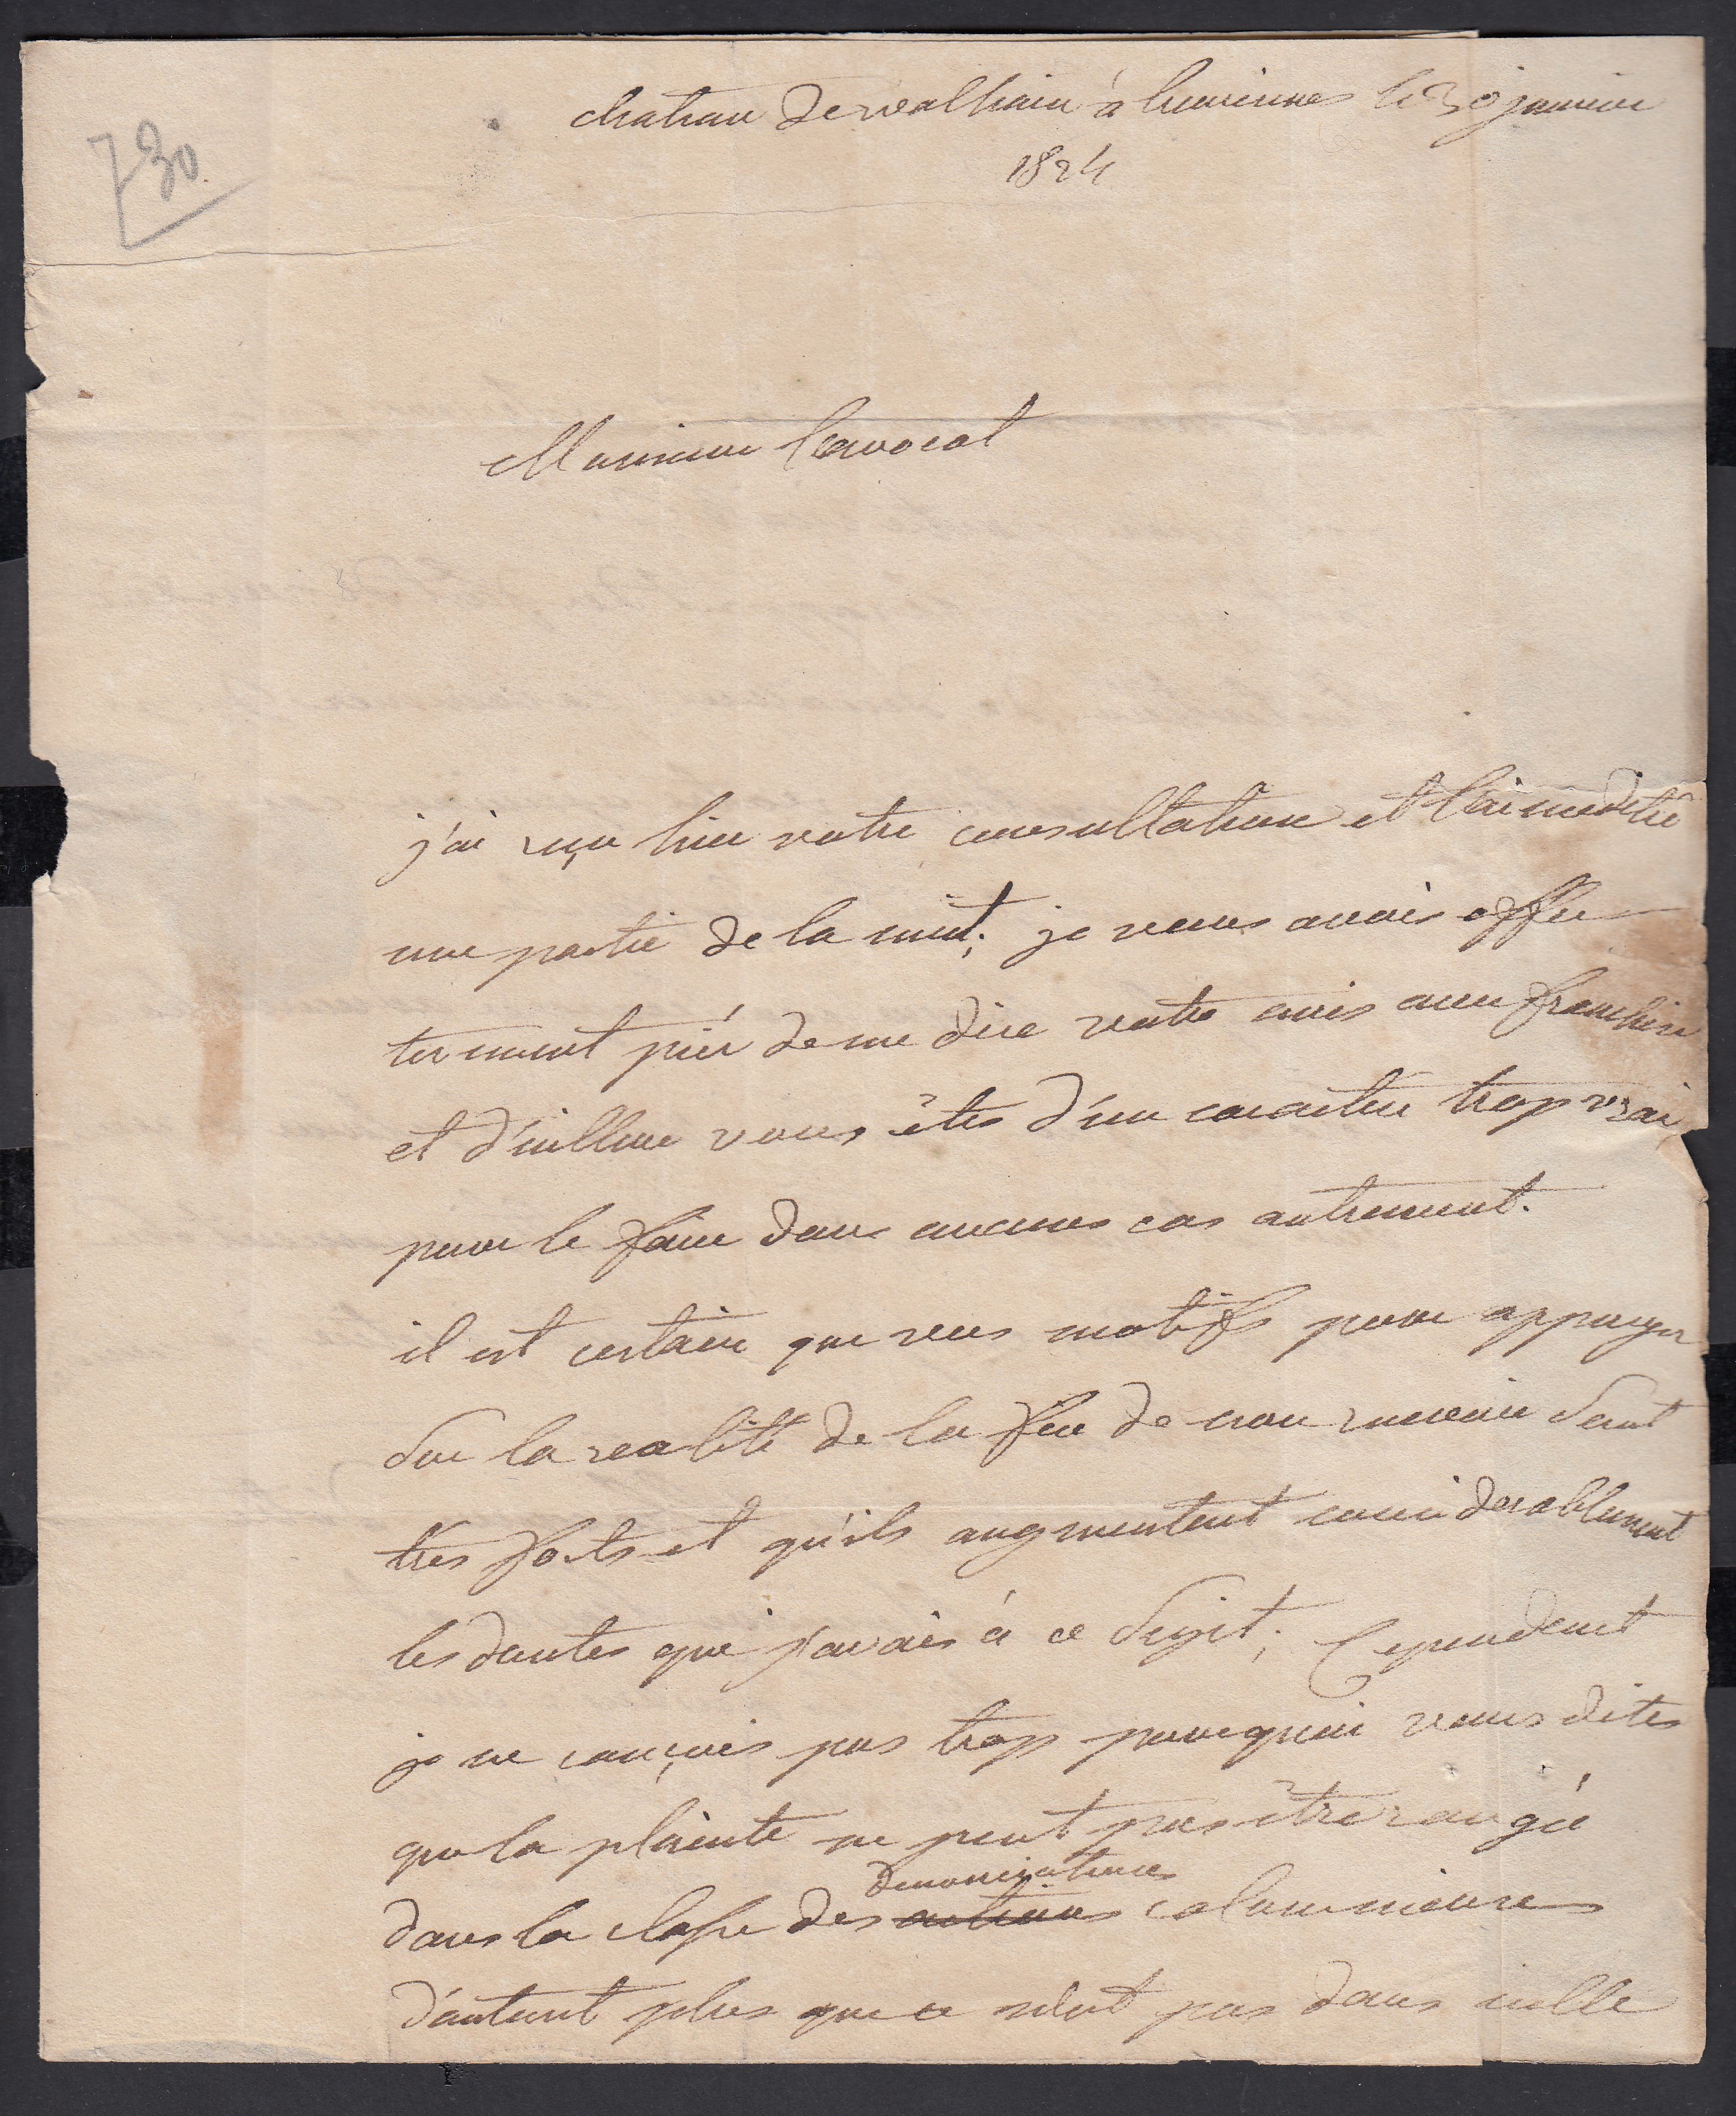 730.
chateau de walhain à le 30 janvier
1824
Monsieur l'avocat
j'ai reçu hier votre consultation et l'ai medité
une partie de la nuit; je vous avois
prié de me dire votre avis avec franchise
et d'aillieur vous êtes d'un caractere trop vrai
pour le faire dans aucuns cas autrement.
il est certain que vos motifs pour appuyer
sur la realité de la fin de non recevoir sont
très forts et qu'ils augmentent considerablement
les doutes que j'avois à ce sujet; Cependant
je ne conçois pas trop pourquoi vous dites
que la plainte ne peut pas être rangée
denonciations
dans la classe des actions calomnieuses
d'autant plus que ce n'est pas dans celle